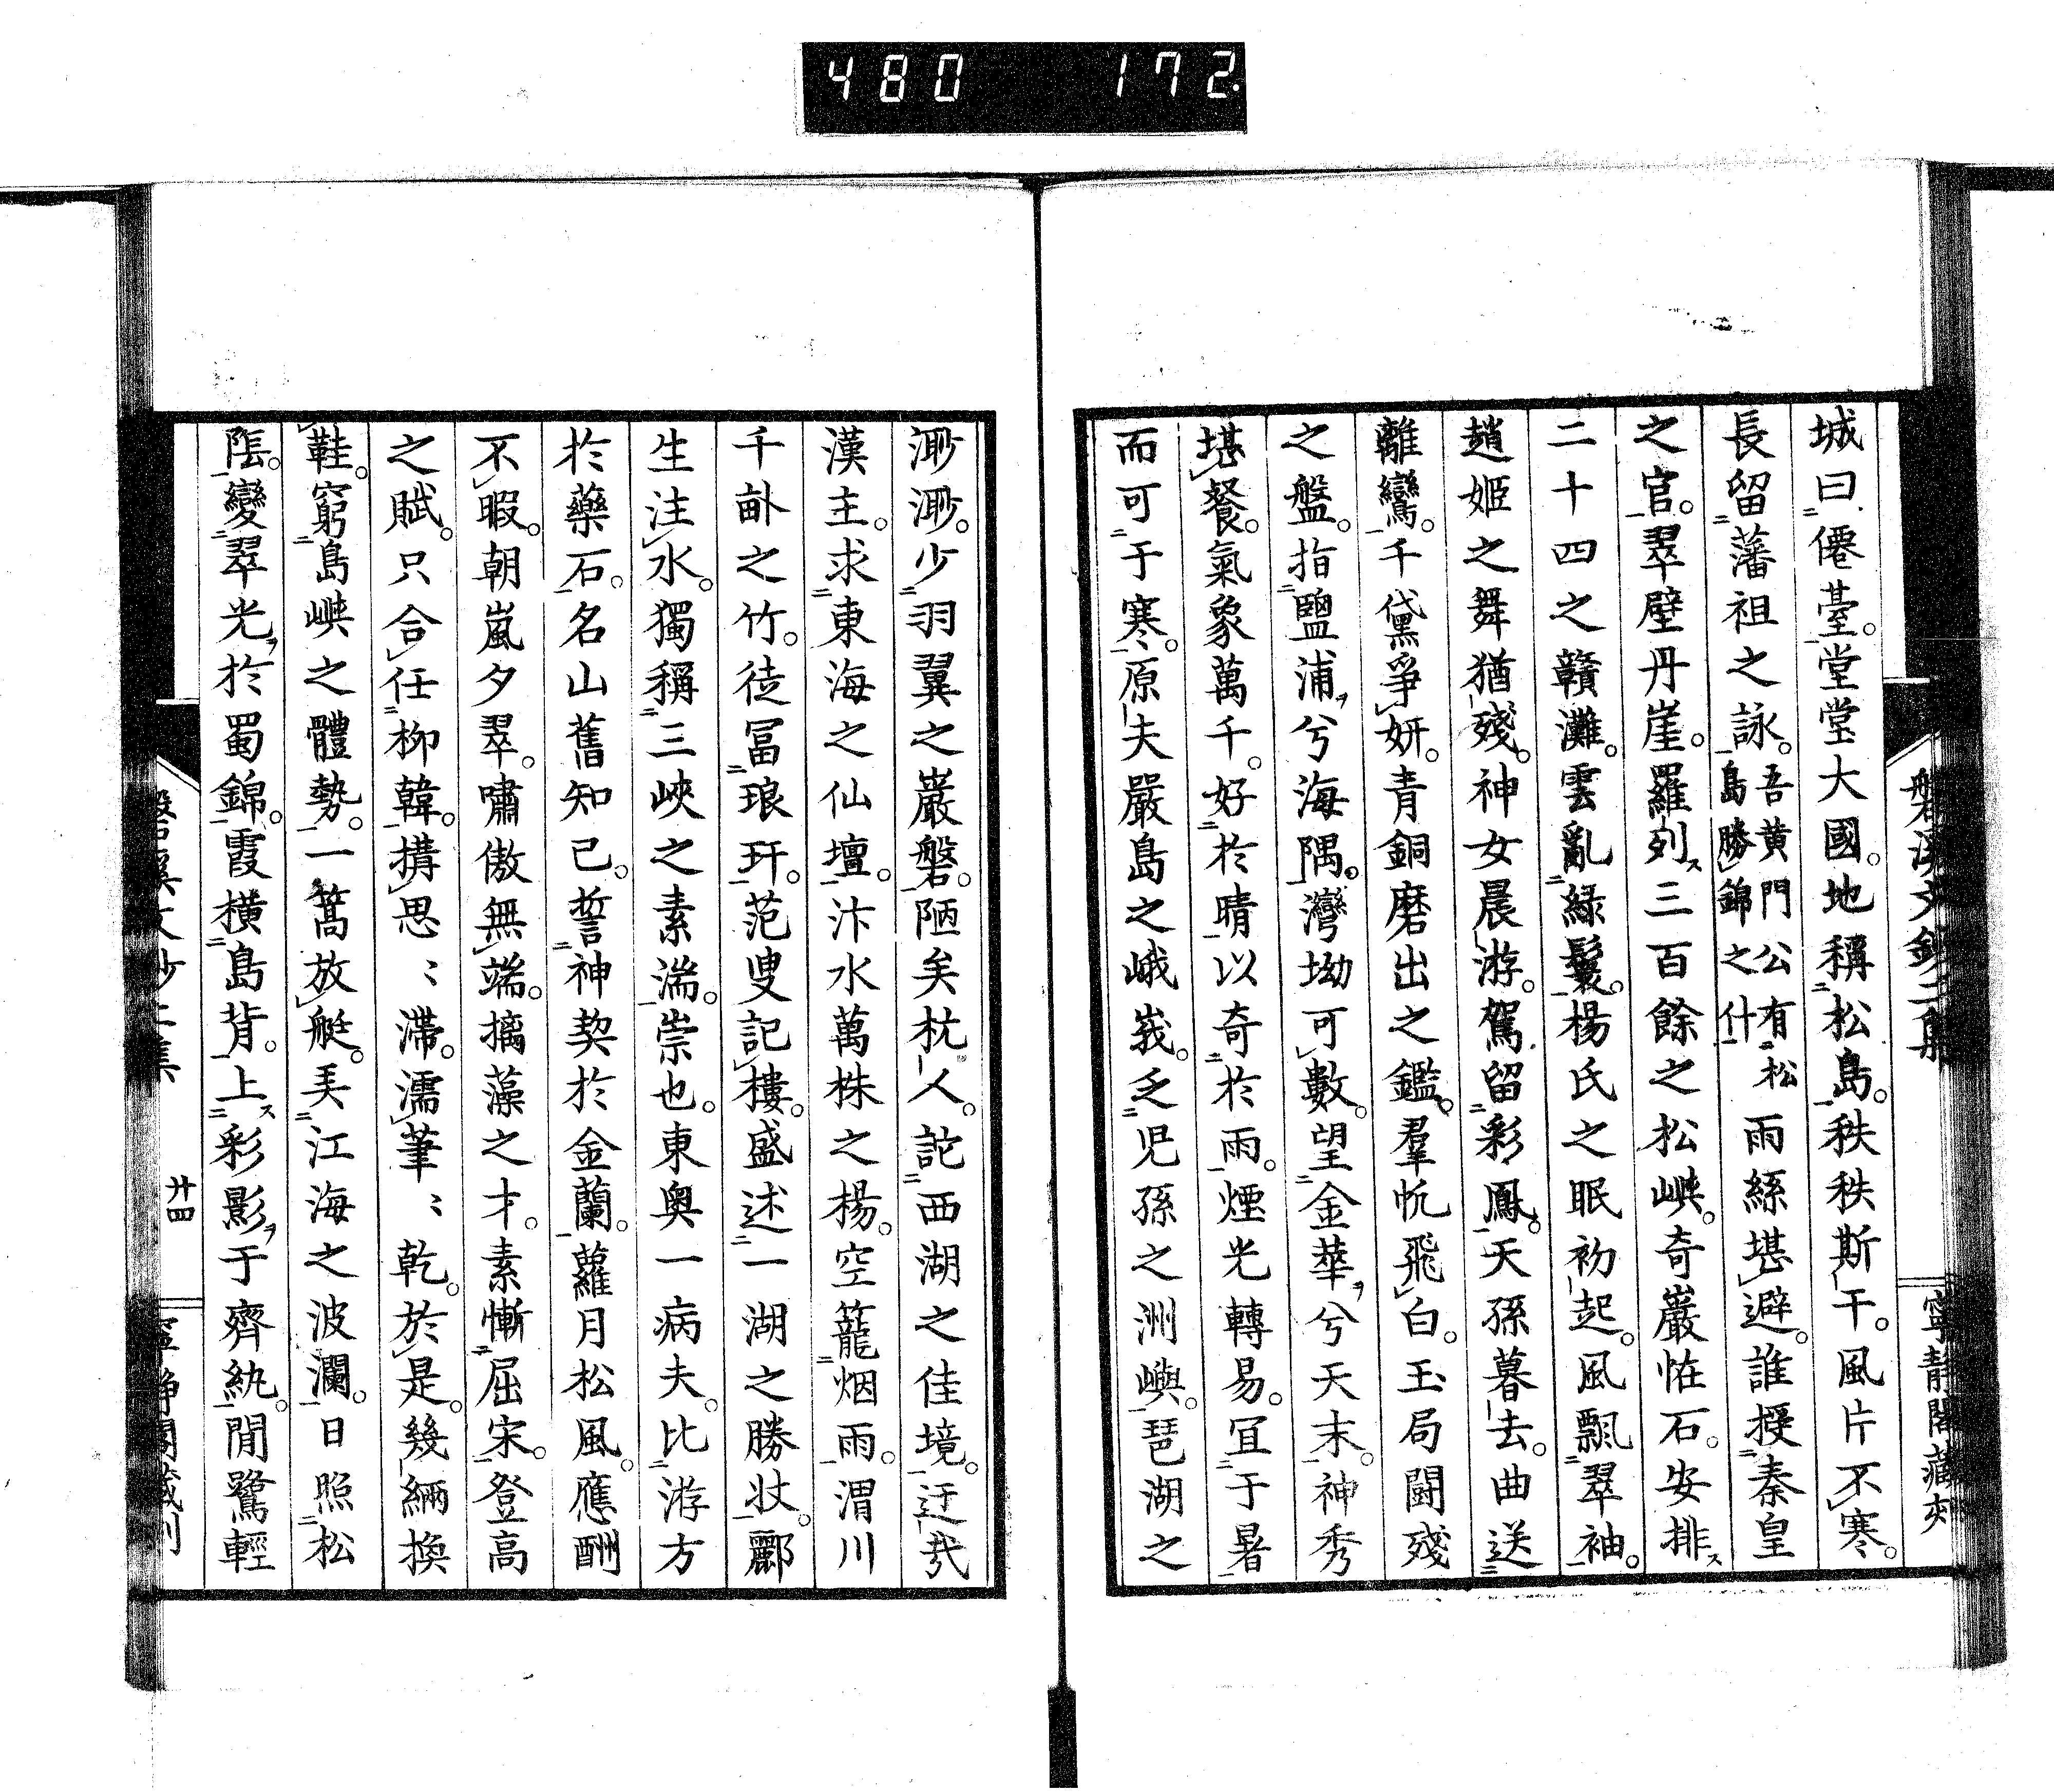 480 172
磐溪文鈔二集
寧靜閣藏刻
城曰僊臺。堂堂大國。地稱松島。秩秩斯干。風片不寒。
長留藩祖之詠。吾黄門公有松島勝錦之什雨絲堪避。誰授秦皇
之官。翠壁丹崖。羅列三百餘之松嶼。奇巖恠石。安排
二十四之贛灘。雲亂綠鬟。楊氏之眠初起。風飄翠袖。
趙姬之舞猶殘。神女晨游。駕留彩鳳。天孫暮去。曲送
離鸞。千黛爭妍。青銅磨出之鑑。羣帆飛白。玉局鬪殘
之盤。指鹽浦兮海隅。灣坳可數。望金華兮天末。神秀
堪餐。氣象萬千。好於晴以奇於雨。煙光轉易。宜于暑
而可于寒。原夫嚴島之峨峩。乏児孫之洲嶼。琶湖之
渺渺。少羽翼之巖磐。陋矣杭人。詑西湖之佳境。迂哉
漢主。求東海之仙壇。汴水萬株之楊。空籠烟雨。渭川
千畝之竹。徒冨琅玕。范叟記樓。盛述一湖之勝壯。酈
生注水。獨稱三峽之素湍。崇也。東奥一病夫。比游方
於藥石。名山舊知己。誓神契於金蘭。蘿月松風。應酬
不暇。朝嵐夕翠。嘯傲無端。摛藻之才。素慚屈宋。登高
之賦。只合任柳韓。搆思〻滯。濡筆〻乾。於是。幾緉換
鞋。窮島嶼之體勢。一篙放艇。弄江海之波瀾。日照松
。變翠光於蜀錦。霞橫島背。上彩影于齊紈。閒鷺輕
磐溪文鈔二集
廿四
寧靜閣藏刻